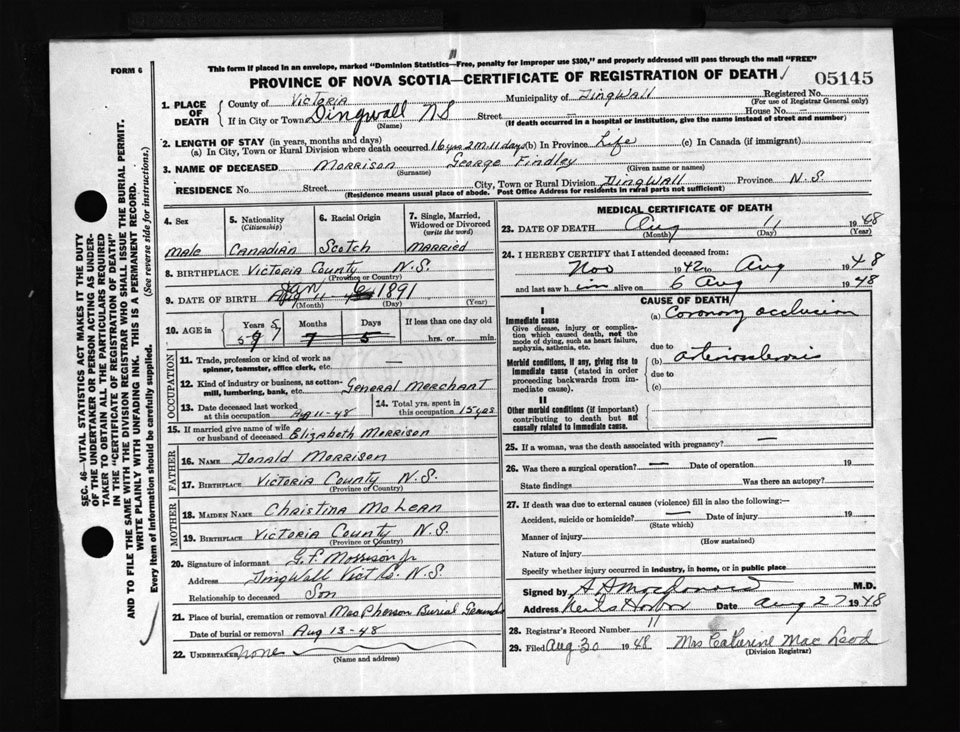 This form if placed in an envelope, marked "Dominion Statistics—Free, penalty for improper use $300," and properly addressed will pass through the mail "FREE"
FORM 6
PROVINCE OF NOVA SCOTIA—CERTIFICATE OF REGISTRATION OF DEATH
05145
SEC. 46—VITAL STATISTICS ACT MAKES IT THE DUTY
OF THE UNDERTAKER OR PERSON ACTING AS UNDER-
TAKER TO OBTAIN ALL THE PARTICULARS REQUIRED
IN THE "CERTIFICATE OF REGISTRATION OF DEATH"
AND TO FILE THE SAME WITH THE DIVISION REGISTRAR WHO SHALL ISSUE THE BURIAL PERMIT.
WRITE PLAINLY WITH UNFADING INK. THIS IS A PERMANENT RECORD.
Every item of information should be carefully supplied. (See reverse side for instructions.)
1. PLACE OF DEATH
County of Victoria Municipality of Dingwall Registered No.
(For use of Registrar General only)
If in City or Town Dingwall NS Street — House No. —
(Name) (If death occurred in a hospital or institution, give the name instead of street and number)
2. LENGTH OF STAY (in years, months and days)
(a) In City, Town or Rural Division where death occurred 16 yrs 2 m. 11 days (b) In Province Life (c) In Canada (if immigrant)
3. NAME OF DECEASED Morrison George Findley
(Surname) (Given name or names)
RESIDENCE No. Street City, Town or Rural Division Dingwall Province N.S.
(Residence means usual place of abode. Post Office Address for residents in rural parts not sufficient)
4. Sex Male
5. Nationality (Citizenship) Canadian
6. Racial Origin Scotch
7. Single, Married, Widowed or Divorced (write the word) Married
8. BIRTHPLACE Victoria County N.S.
(Province or Country)
9. DATE OF BIRTH Jan 6 1891
(Month) (Day) (Year)
10. AGE in Years 57 Months 7 Days 5 If less than one day old hrs. or min.
OCCUPATION
11. Trade, profession or kind of work as spinner, teamster, office clerk, etc. —
12. Kind of industry or business, as cotton-mill, lumbering, bank, etc. General Merchant
13. Date deceased last worked at this occupation Aug 11-48
14. Total yrs. spent in this occupation 15 yrs
15. If married give name of wife or husband of deceased Elizabeth Morrison
FATHER
16. NAME Donald Morrison
17. BIRTHPLACE Victoria County N.S.
(Province or Country)
MOTHER
18. MAIDEN NAME Christina McLean
19. BIRTHPLACE Victoria County N.S.
(Province or Country)
20. Signature of informant G.F. Morrison Jr
Address Dingwall Vict Co. N.S.
Relationship to deceased Son
21. Place of burial, cremation or removal MacPherson Burial Grounds
Date of burial or removal Aug 13-48
22. UNDERTAKER None
(Name and address)
MEDICAL CERTIFICATE OF DEATH
23. DATE OF DEATH Aug 11 1948
(Month) (Day) (Year)
24. I HEREBY CERTIFY that I attended deceased from:
Nov 1942 to Aug 1948
and last saw him alive on 6 Aug 1948
CAUSE OF DEATH
I
Immediate cause
Give disease, injury or complication which caused death, not the mode of dying, such as heart failure, asphyxia, asthenia, etc.
(a) Coronary occlusion
due to
Morbid conditions, if any, giving rise to immediate cause (stated in order proceeding backwards from immediate cause).
(b) arteriosclerosis
due to
(c)
II
Other morbid conditions (if important) contributing to death but not causally related to immediate cause.
25. If a woman, was the death associated with pregnancy? —
26. Was there a surgical operation? — Date of operation 19
State findings Was there an autopsy?
27. If death was due to external causes (violence) fill in also the following:—
Accident, suicide or homicide? — Date of injury 19
(State which)
Manner of injury
(How sustained)
Nature of injury
Specify whether injury occurred in industry, in home, or in public place
Signed by M.D.
Address Neils Harbor Date Aug 27 1948
28. Registrar's Record Number 11
29. Filed Aug. 30 1948 Mrs Catherine MacLeod
(Division Registrar)